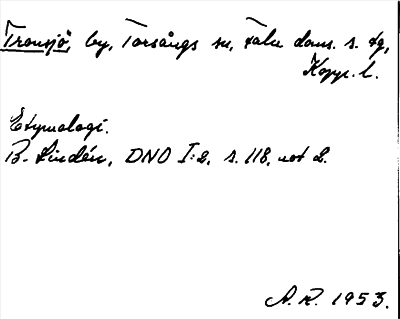 Tronsjö, by, Torsångs sn, Falu doms. s. tg,
Kopp. l.
Etymologi.
B. Lindén, DNO I:2, s. 118, not 2.
A. R. 1953.